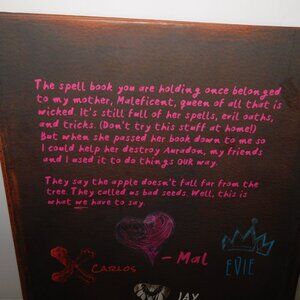 The spell book you are holding once belonged
to my mother, Maleficent, queen of all that is
wicked. It's still full of her spells, evil oaths,
and tricks. (Don't try this stuff at home!)
But when she passed her book down to me so
I could help her destroy Auradon, my friends
and I used it to do things OUR way.
They say the apple doesn't fall far from the
tree. They called us bad seeds. Well, this is
what we have to say.
- Mal
EVIE
CARLOS
JAY